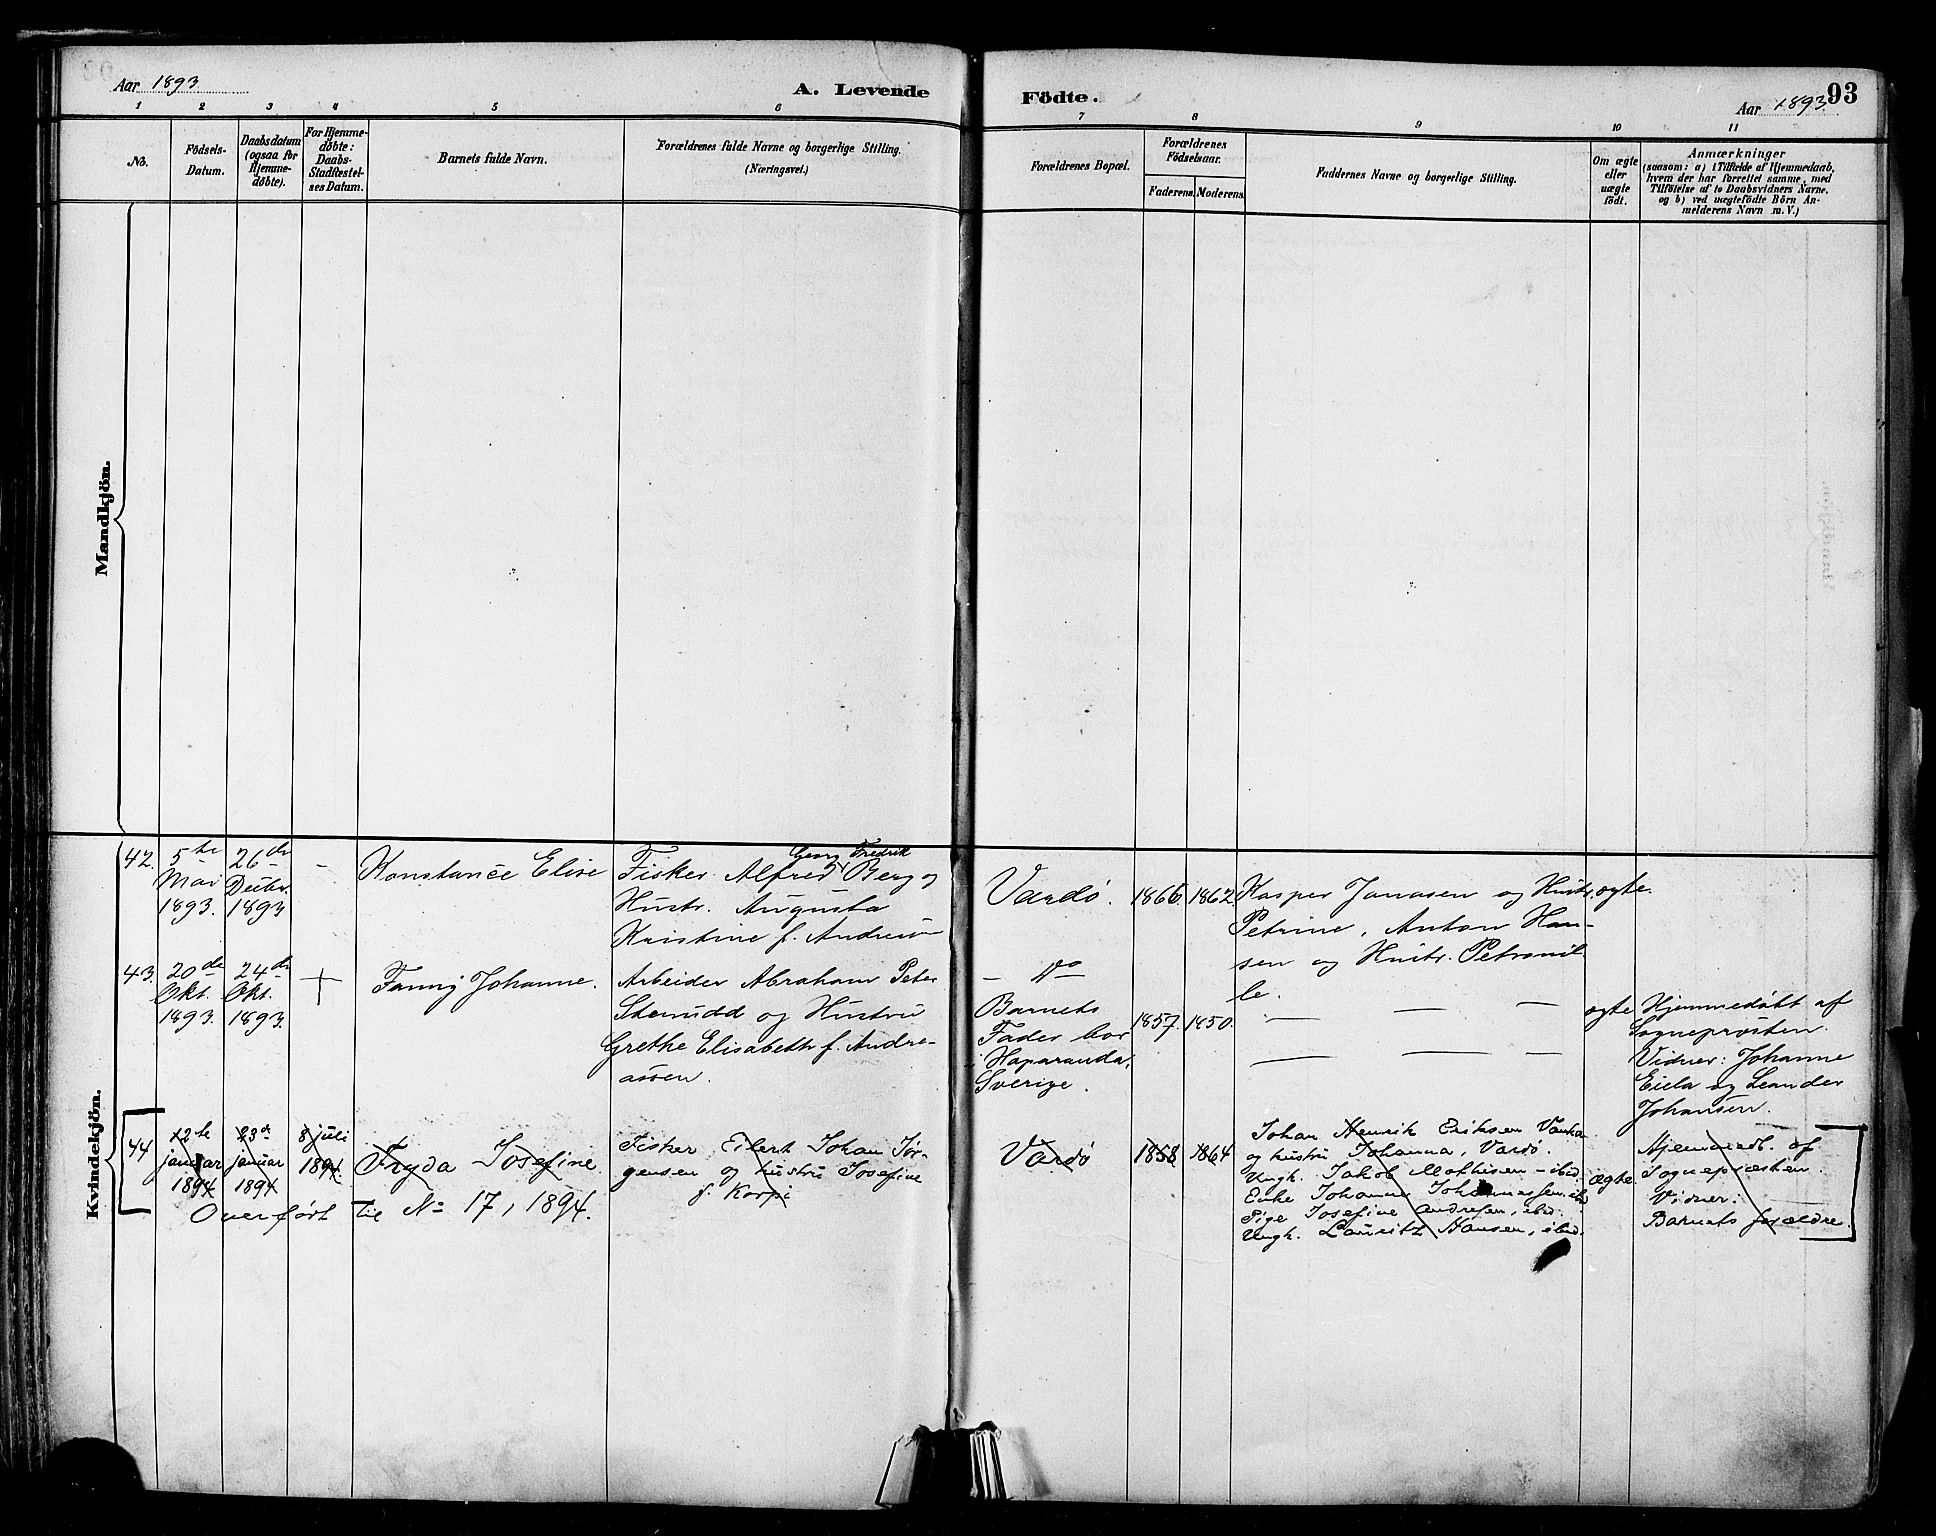 Aar 1893.
A. Levende
Födte.
Aar 1893.
93
1 2 3 4 5 6 7 8 9 10 11
No.
Födsels-
Datum.
Daabsdatum
(ogsaa for
Hjemme-
döbte).
For Hjemme-
döbte:
Daabs-
Stadfæstel-
ses Datum.
Barnets fulde Navn.
Forældrenes fulde Navne og borgerlige Stilling.
(Næringsvei.)
Forældrenes Bopæl.
Forældrenes
Födselsaar.
Faderens. Moderens.
Faddernes Navne og borgerlige Stilling.
Om ægte
eller
uægte
födt.
Anmærkninger
(saasom: a) i Tilfælde af Hjemmedaab,
hvem der har forrettet samme, med
Tilföielse af to Daabsvidners Navne,
og b) ved uægtefödte Börn An-
melderens Navn m. V.)
Mandkjön.
Kvindekjön.
42.
5te
Mai
1893.
26de
Decbr.
1893
–
Konstance Elise
Georg Fredrik
Fisker Alfred Berg og
Hustr. Augusta
Kristine f. Andresen
Vardø.
1866.
1862.
Kasper Jonasen og Hustr.
Petrine, Anton Han-
sen og Hustr. Petronil-
le.
ægte.
43.
20de
Okt.
1893.
24de
Okt.
1893.
+
Fanny Johanne.
Arbeider Abraham Peter
Stenudd og Hustru
Grethe Elisabeth f. Andre-
assen.
– Do
Barnets
Fader bor
i Haparanda,
Sverige.
1857.
1850.
— — —
— — —
ægte
Hjemmedøbt af
Sognepræsten.
Vidner: Johanne
Eiela og Leander
Johansen.
44
12te
januar
1894
23de
januar
1894
8 juli
1894.
Fryda Josefine.
Fisker Eilert Johan Jør-
gensen og hustru Josefine
f. Korpi
Vardø
1858
1864
Johan Henrik Eriksen Vanha
og hustru Johanna, Vardø.
Ungk. Jakob Mathisen – ibid
Enke Johanne Johannessen, ibid
Pige Josefine Andresen, ibid.
Ungk. Lauritz Hansen, ibid.
ægte.
Hjemmedb. af
Sognepræsten.
Vidner:
Barnets forældre.
Overført til No 17, 1894.